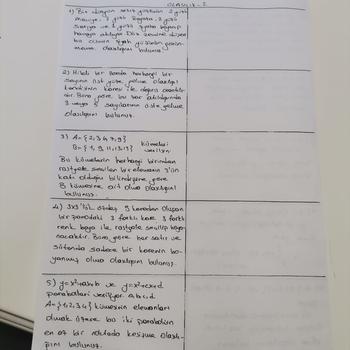 OLASILIK - 2
1) Bir düzgün sekiz yüzlünün 2 yüzü
maviye, 3 yüzü beyaza, 2 yüzü
sarıya ve 1 yüzü siyaha boyanıp
havaya atılıyor. Düz zemine düşen
bu cismin siyah yüzünün görün-
meme olasılığını bulunuz.
2) Hileli bir zarda herhangi bir
sayının üst yüze gelme olasılığı
kendisinin karesi ile doğru orantılı-
dır. Buna göre bu zar atıldığında
3 veya 5 sayılarının üste gelme
olasılığını bulunuz.
3) A={2,3,4,7,9} kümeleri
B={1,9,11,13,17} veriliyor.
Bu kümelerin herhangi birinden
rastgele seçilen bir elemanın 3'ün
katı olduğu bilindiğine göre
B kümesine ait olma olasılığını
bulunuz.
4) 3x3'lük özdeş 9 kareden oluşan
bir panodaki 3 farklı kare 3 farklı
renk boya ile rastgele seçilip boya-
nacaktır. Buna göre her satır ve
sütunda sadece bir karenin bo-
yanmış olma olasılığını bulunuz.
5) y=x²+ax+b ve y=x²+cx+d
parabolleri veriliyor. a,b,c,d
A={1,2,3,4} kümesinin elemanları
olmak üzere bu iki parabolün
en az bir noktada kesişme olasılı-
ğını bulunuz.